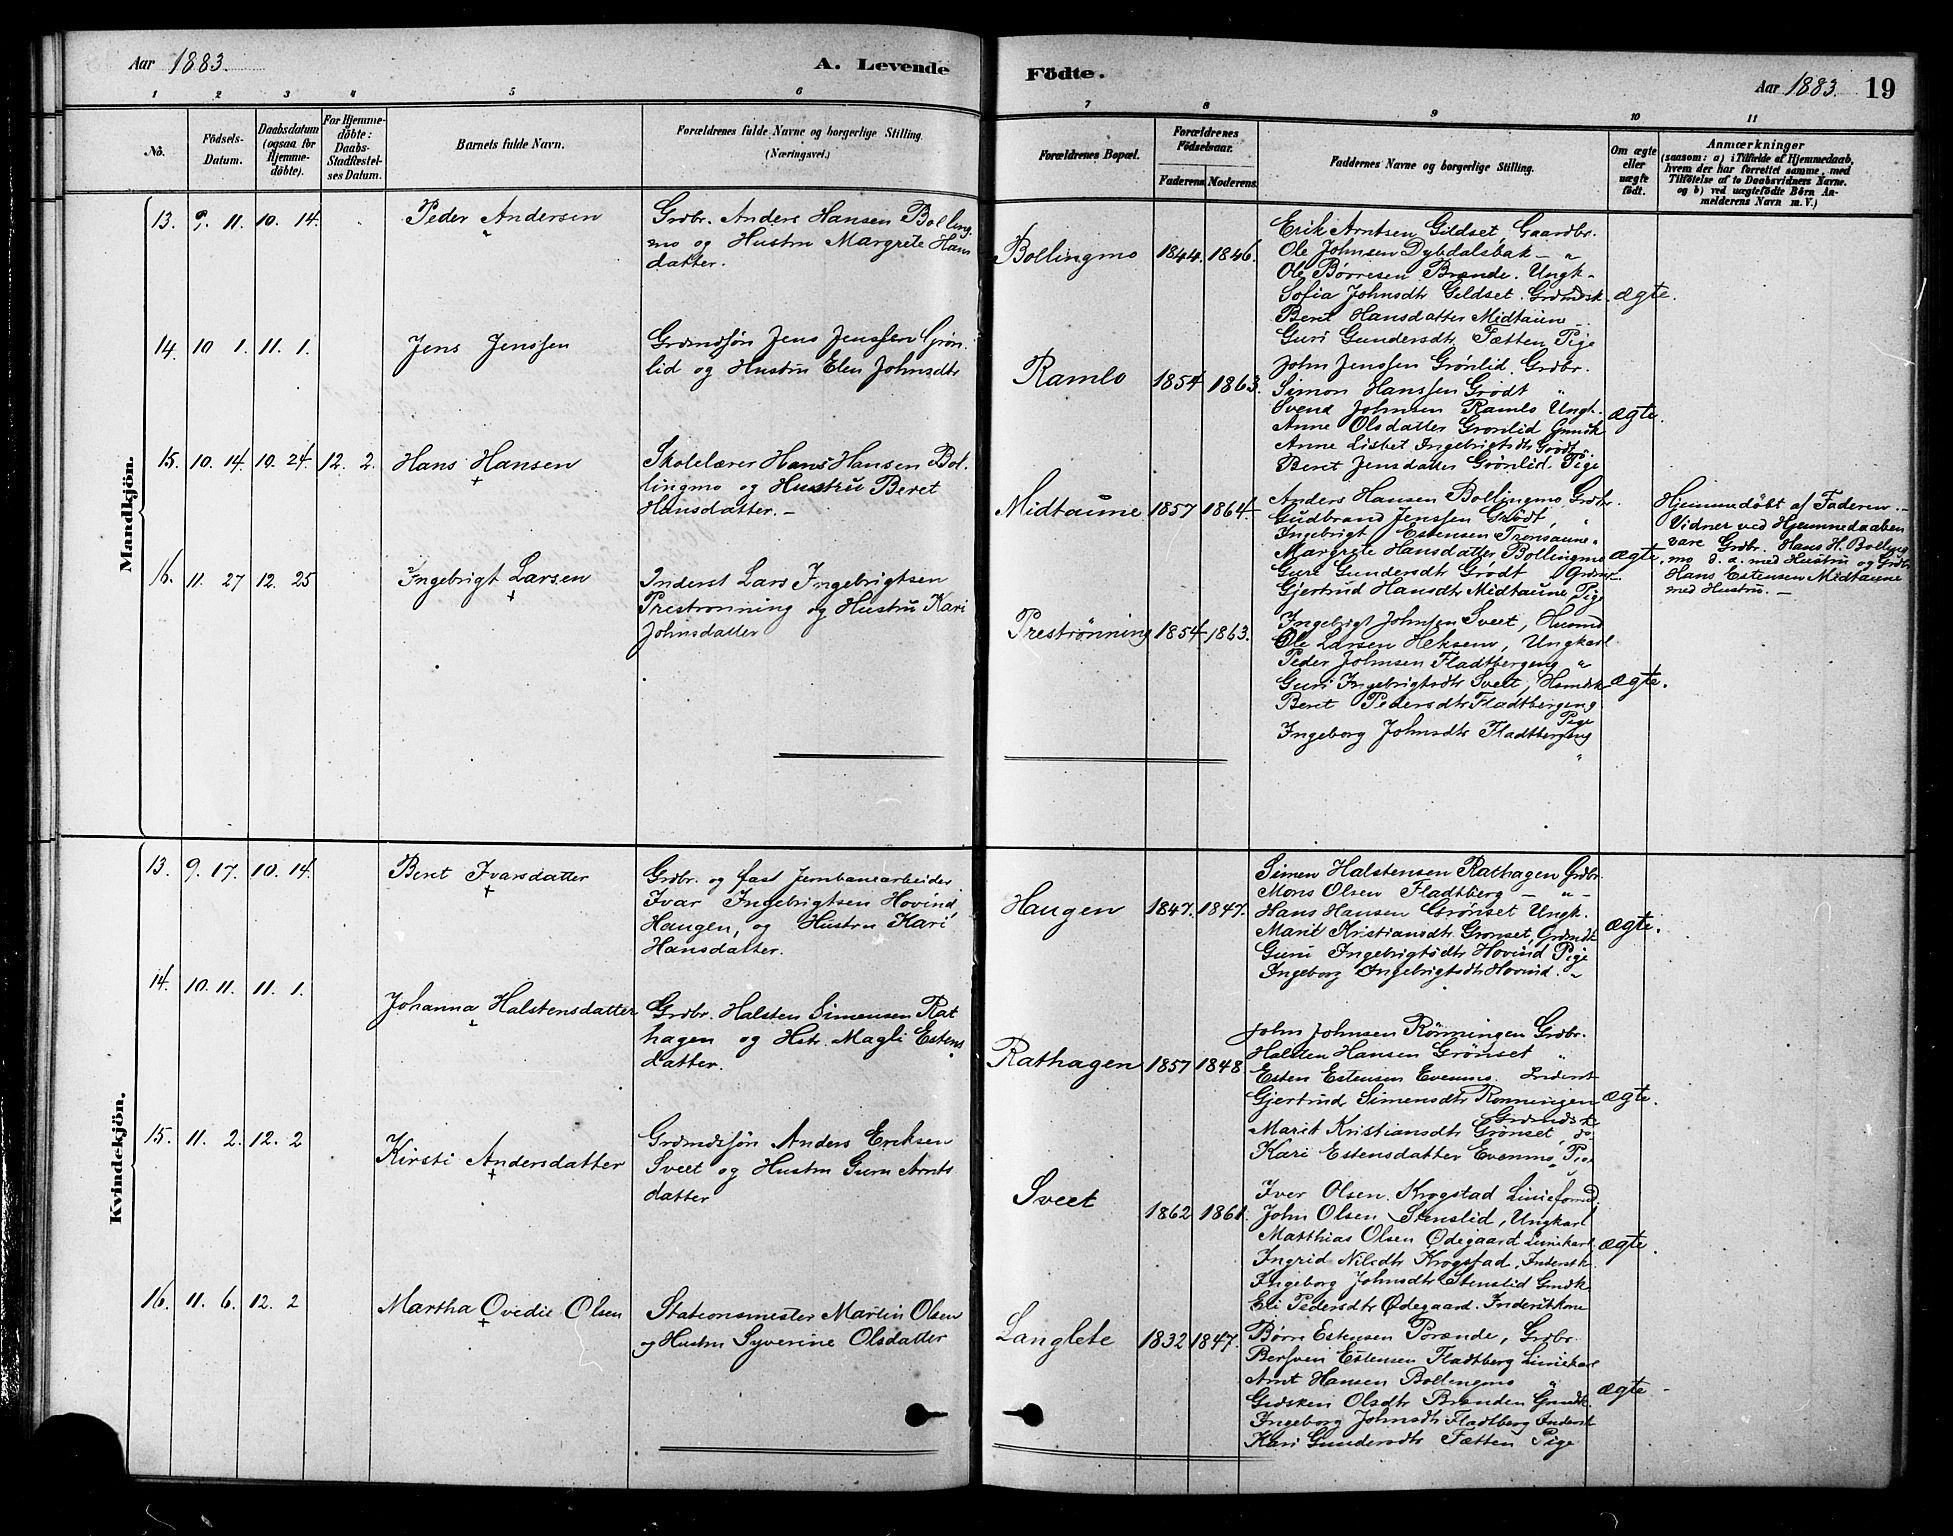 Aar 1883.
A. Levende
Födte.
Aar 1883. 19
1 2 3 4 5 6
7 8 9 10 11
No.
Födsels-
Datum.
Daabsdatum
(ogsaa for
Hjemme-
döbte).
For Hjemme-
döbte:
Daabs-
Stadfæstel-
ses Datum.
Barnets fulde Navn.
Forældrenes fulde Navne og borgerlige Stilling.
(Næringsvei.)
Forældrenes Bopæl.
Forældrenes
Födselsaar.
Faderens. Moderens.
Faddernes Navne og borgerlige Stilling.
Om ægte
eller
uægte
födt.
Anmærkninger
(saasom: a) i Tilfælde af Hjemmedaab,
hvem der har forrettet samme, med
Tilföielse af to Daabsvidners Navne.
og b) ved uægtefödte Börn An-
melderens Navn m. V.)
Mandkjön.
13. 9. 11. 10. 14.
Peder Andersen
Grdbr. Anders Hansen Bolling
mo og Hustru Margrete Hans
datter.
Bollingmo 1844. 1846.
Erik Arntsen Gildset, Gaardbr.
Ole Johnsen Dybdalsbak - "
Ole Børresen Brænde. Ungk.
Sofia Johnsdtr Gildset. Grdmdsk.
Beret Hansdatter Midtaune
Guri Gundersdtr. Fætten, Pige
ægte.
14. 10 1. 11. 1.
Jens Jenssen
Grdmdsøn Jens Jenssen Grøn-
lid og Hustru Elen Johnsdtr
Ramlo 1854 1863.
John Jenssen Grønlid. Grdbr.
Simon Hanssen Grødt "
Svend Johnsen Ramlo Ungk.
Anne Olsdatter Grønlid Grmdk
Anne Lisbet Ingebrigtsdtr Grødt
Beret Jensdatter Grønlid. Pige
ægte.
15. 10. 14. 10. 24. 12. 2.
Hans Hansen
Skolelærer Hans Hansen Bol-
lingmo og Hustru Beret
Hansdatter. -
Midtaune 1857 1864.
Anders Hansen Bollingmo Grdbr.
Gudbrand Jenssen Grödt, "
Ingebrigt Estensen Trønsaune "
Margrete Hansdatter Bollingmo
Guri Gundersdtr Grødt Grdmk.
Gjertrud Hansdtr Midtaune Pige
ægte.
Hjemmedøbt af Faderen. -
Vidner ved Hjemmedaaben
vare Grdbr. Hans H. Bolling
mo d. a. med Hustru og Grdbr
Hans Estensen Midtaune
med Hustru. -
16. 11. 27 12. 25
Ingebrigt Larsen
Inderst Lars Ingebrigtsen
Prestrønning og Hustru Kari
Johnsdatter
Prestrønning 1854 1863.
Ingebrigt Johnsen Sveet, Husmd
Ole Larsen Heksem, Ungkarl
Peder Johnsen Fladtbergeng "
Guri Ingebrigtsdtr Sveet, Hsmdk
Beret Pedersdtr Fladtbergeng
Pige
Ingeborg Johnsdtr Fladtbergeng
"
ægte.
Kvindekjön.
13. 9. 17. 10. 14.
Beret Ivarsdatter
Grdbr. og fast Jernbanearbeider
Ivar Ingebrigtsen Hovind
Haugen, og Hustru Kari
Hansdatter.
Haugen 1847. 1847.
Simen Halstensen Rathagen Grdbr.
Mons Olsen Fladtberg - " -
Hans Hansen Grönset Ungk.
Marit Kristiansdtr Grønset, Grdmdk
Guri Ingebrigtsdtr Hovind Pige
Ingeborg Ingebrigtsdtr Hovind. "
ægte.
14. 10. 11. 11. 1.
Johanna Halstensdatter
Grdbr. Halsten Simensen Rat
hagen og Hstr. Magli Estens
datter.
Rathagen 1857 1848
John Johnsen Rönningen Grdbr.
Halsten Hansen Grönset "
Esten Estensen Evenmo. Inderst
Gjertrud Simensdtr Rønningen
Grdmdsk
Marit Kristiansdtr Grønset, do
Kari Estensdatter Evenmo, Pige
ægte.
15. 11. 2. 12. 2
Kirsti Andersdatter
Grdmdsøn Anders Eriksen
Sveet og Hustru Guru Arnts
datter
Sveet 1862 1861.
Iver Olsen Krogstad Linieformd,
John Olsen Stenslid, Ungkarl
Matthias Olsen Ødegaard Liniekarl
Ingrid Nilsdtr Krogstad, Inderstk.
Ingeborg Johnsdtr Stenslid Gmdk
Eli Pedersdtr Ødegaard. Inderstkone
ægte.
16. 11. 6. 12. 2
Martha Ovedie Olsen
Stationsmester Martin Olsen
og Hustru Syverine Olsdatter
Langlete 1832 1847.
Børre Estensen Porænde, Grdbr.
Berfven Estensen Fladtberg Liniekarl
Arnt Hansen Bollingmo "
Gidsken Olsdtr Brænden Grmdk.
Ingeborg Johnsdtr Fladtberg Inderstk
Kari Gundersdtr Fætten Pige
ægte -